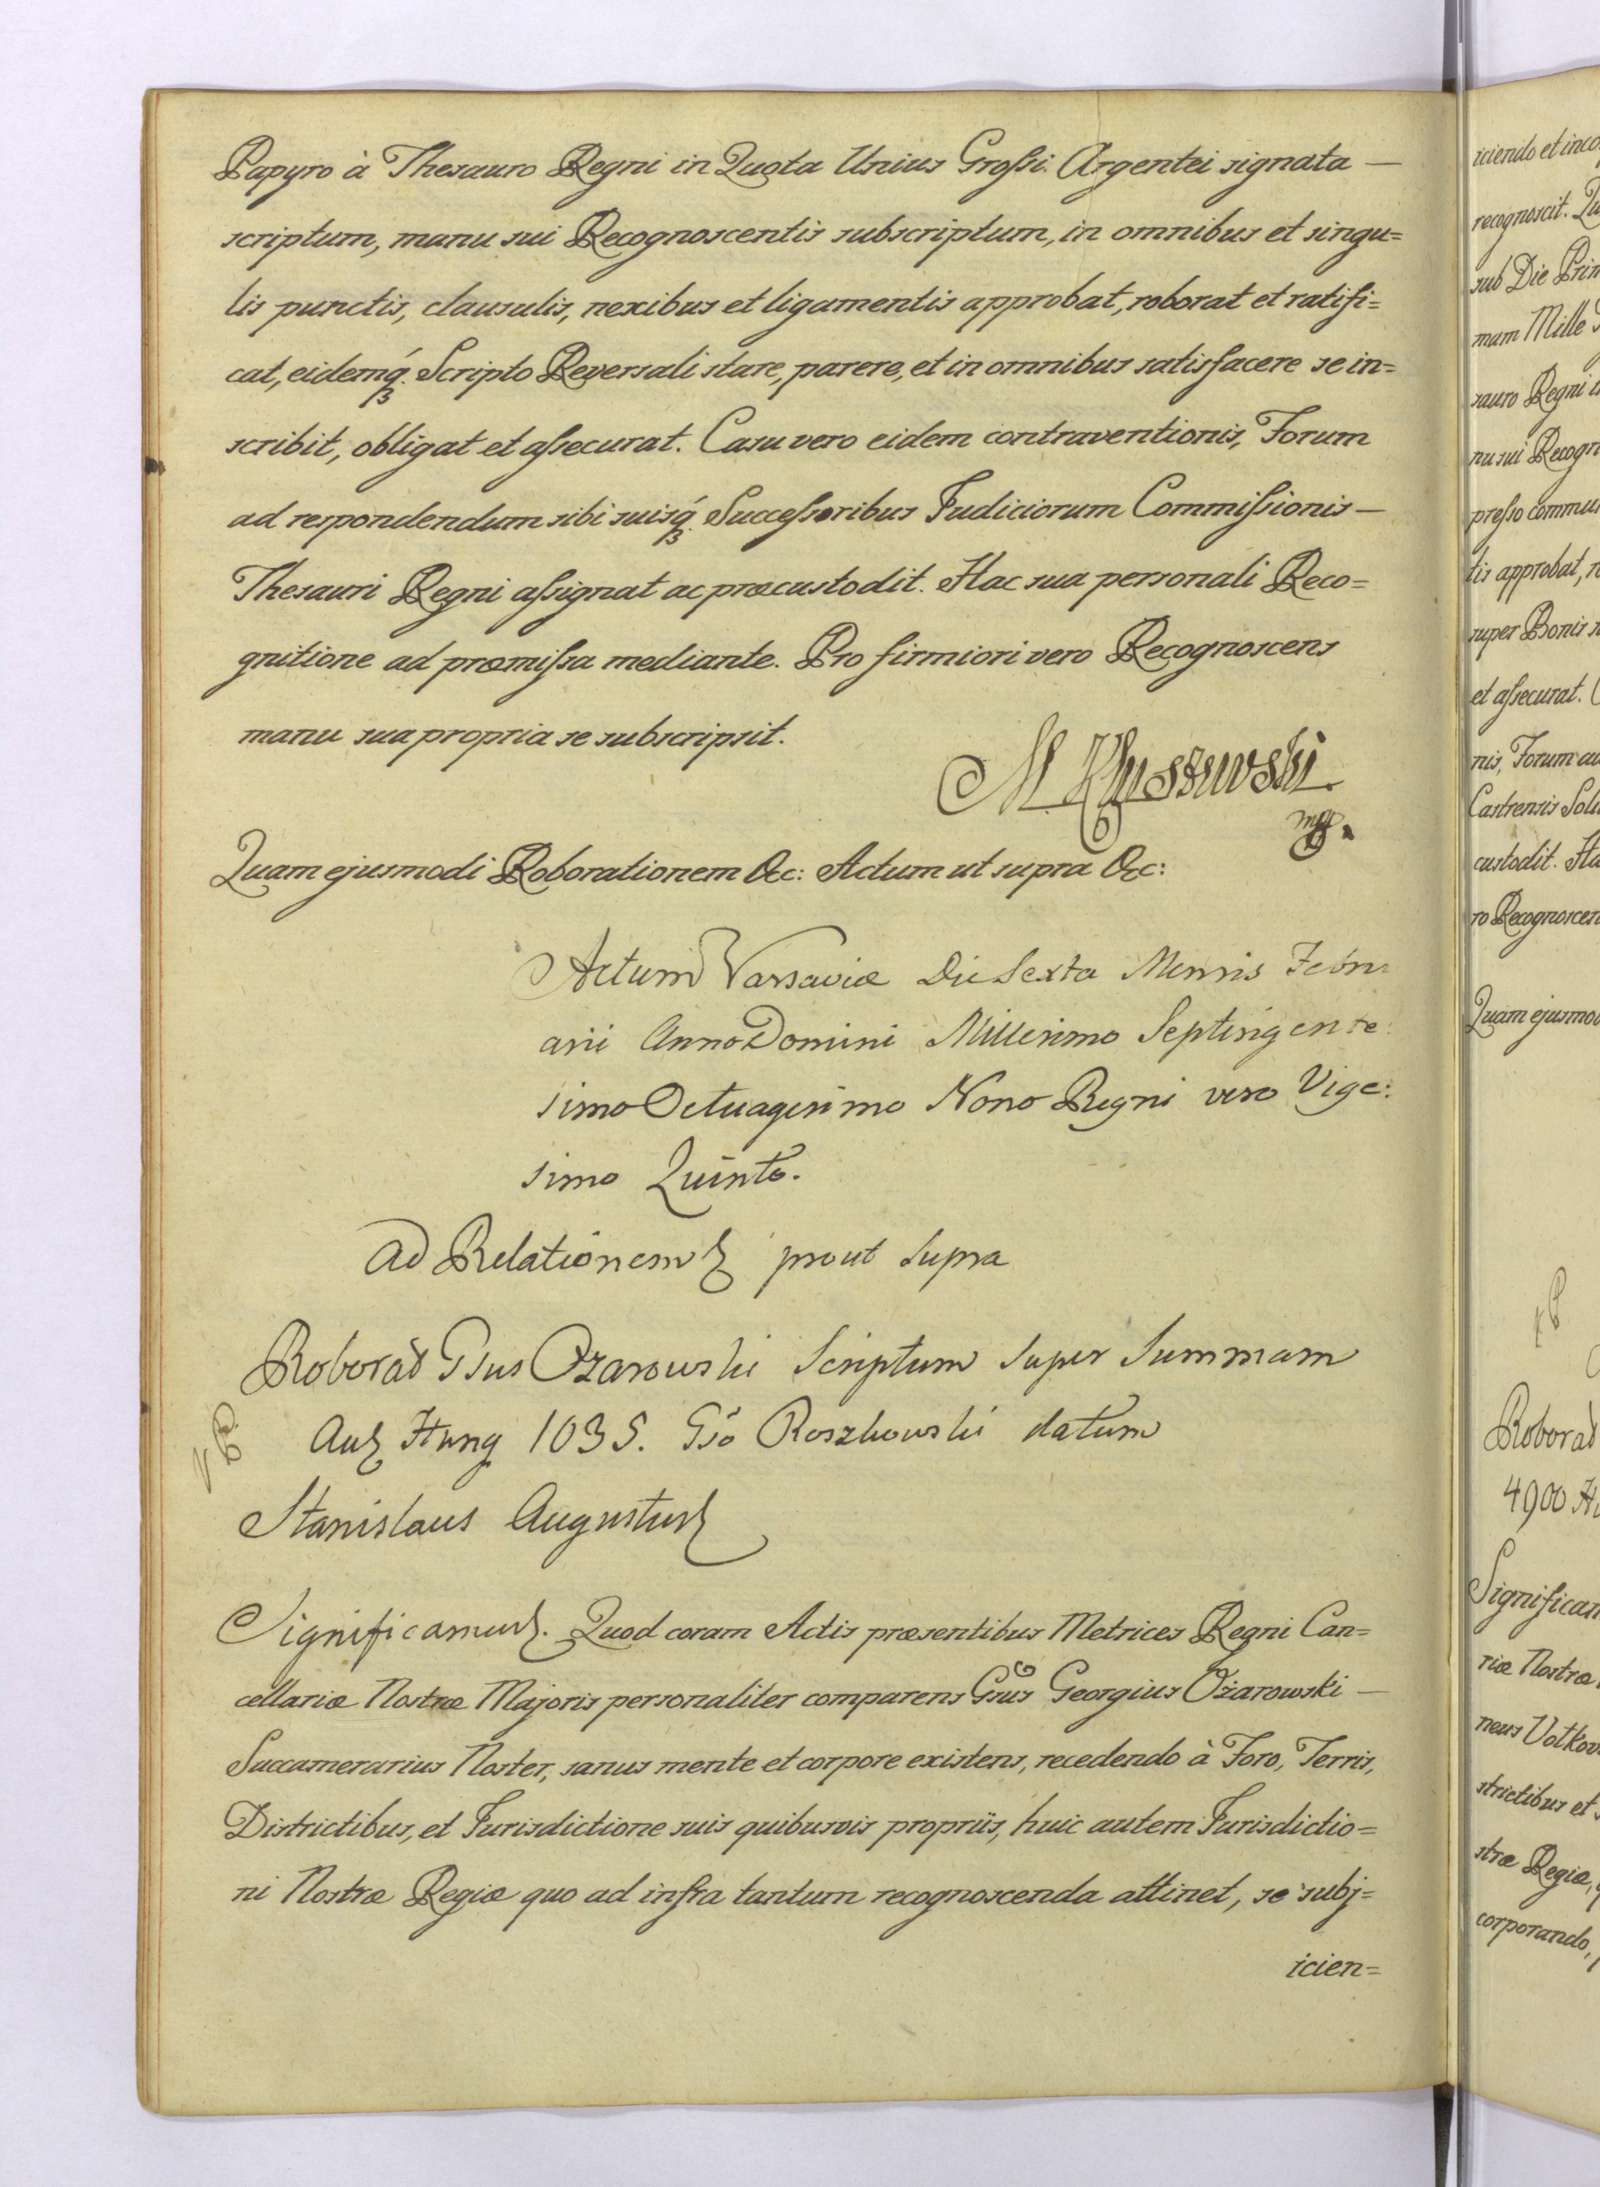 Papyro à Thesauro Regni in Quota Unius Grossi Argentei signata —
scriptum, manu sui Recognoscentis subscriptum, in omnibus et singu=
lis punctis, clausulis, nexibus et ligamentis approbat, roborat et ratifi=
cat, eidemq́. Scripto Reversali stare, parere, et in omnibus satisfacere se in=
scribit, obligat et assecurat. Casu vero eidem contraventionis, Forum
ad respondendum sibi suisq́. Successoribus Judiciorum Commissionis —
Thesauri Regni assignat ac præcustodit. Hac sua personali Reco=
gnitione ad præmissa mediante. Pro firmiori vero Recognoscens
manu sua propria se subscripsit.
M Kluszewski
mp.
Quam ejusmodi Roborationem &c: Actum ut supra &c:
Actum Varsaviæ Die Sexta Mensis Febru
arii Anno Domini Millesimo Septingente:
simo Octuagesimo Nono Regni vero Vige:
simo Quinto.
Ad Relationem prout supra
Roborat Gsus Ozarowski Scriptum super Summam
Hung 1035. Gso Roszkowski datum
Stanislaus Augustus
Significamus. Quod coram Actis præsentibus Metrices Regni Can=
cellariæ Nostræ Majoris personaliter comparens Gsus Georgius Ożarowski —
Succamerarius Noster, sanus mente et corpore existens, recedendo à Foro, Terris,
Districtibus, et Jurisdictione suis quibusvis propriis, huic autem Jurisdictio=
ni Nostræ Regiæ quo ad infra tantum recognoscenda attinet, se subj=
icien=
iciendo et inco
recognoscit.
sub Die Prim
mam Mille
sauro Regni
nu sui Recogn
presso commu
tis approbat,
super Bonis
et assecurat.
nis, Forum
Castrensis
custodit. Ha
ro Recognoscen
Quam ejusmo
Roborat
4900
Significam
riæ Nostræ
neus
strictibus et
stræ Regiæ,
corporando,